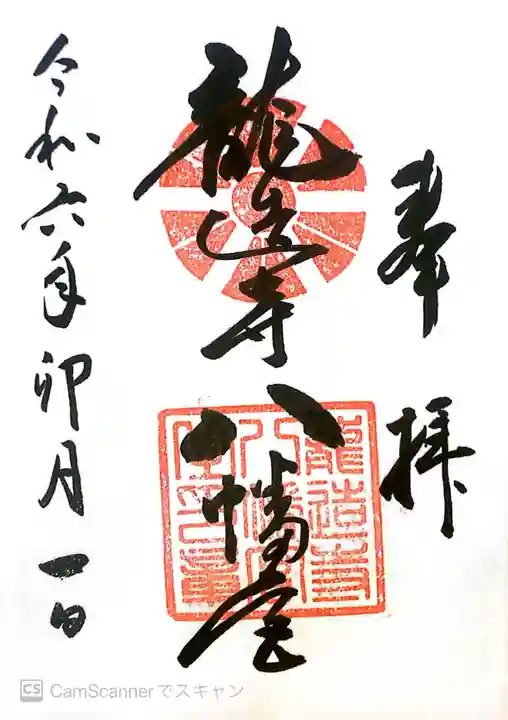 奉拝
龍造寺八幡宮
龍造寺
八幡宮
令和六年卯月一日
CS CamScannerでスキャン